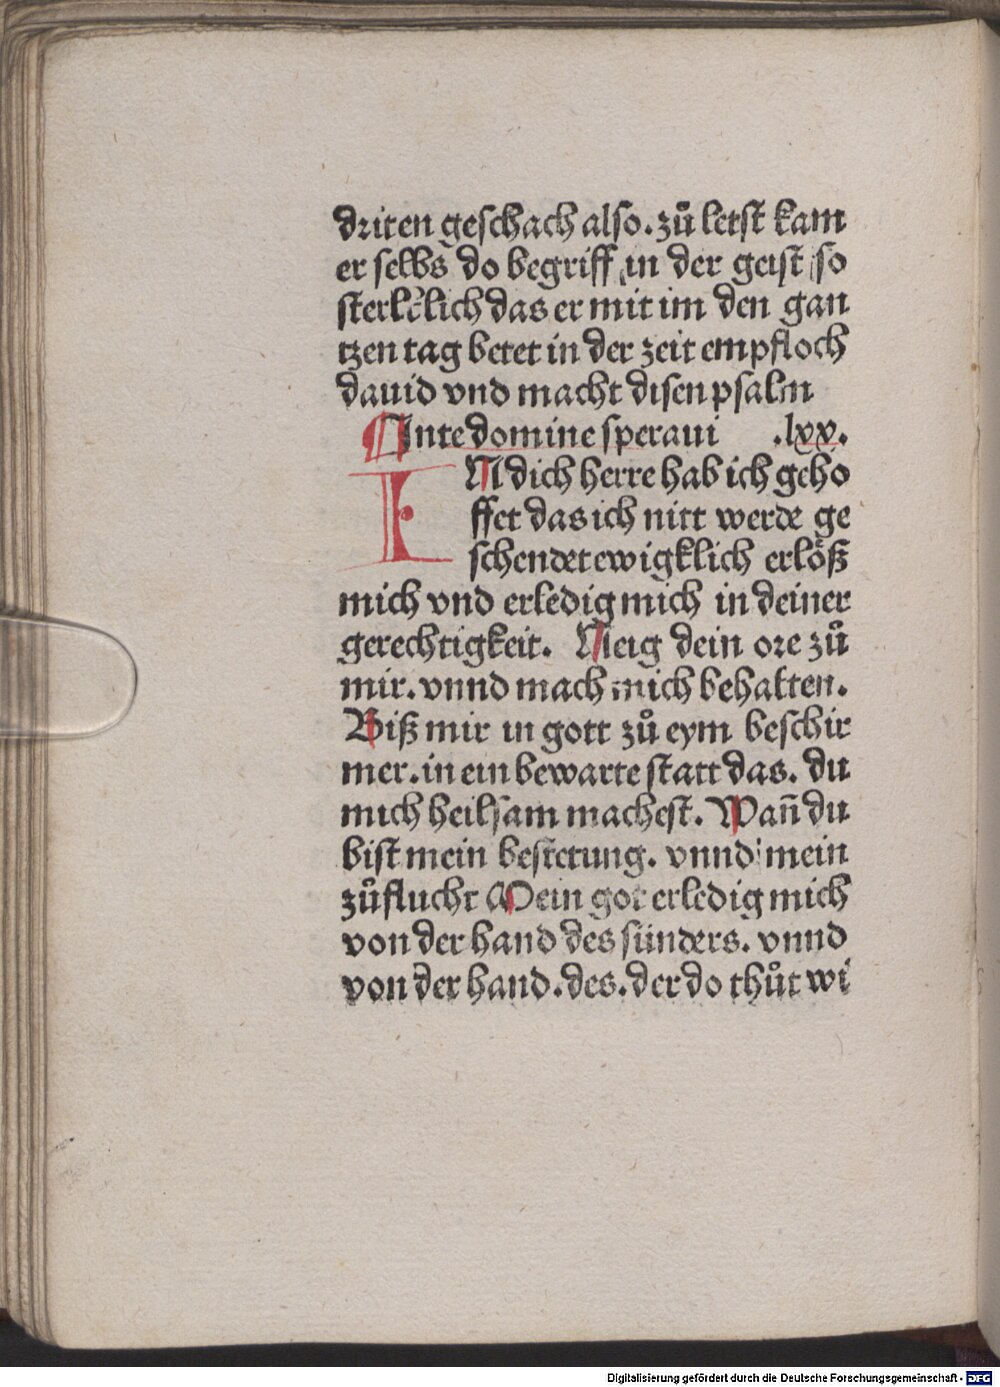 driten geschach also. zů letst kam
er selbs do begriff in der geist so
sterlēlich das er mit im den gan
tzen tag betet in der zeit empfloch
dauid vnd macht disen psalm
Inte domine speraui .lxx.
IN dich herre hab ich geho
ffet das ich nitt werde ge
schendet ewigklich erlöß
mich vnd erledig mich in deiner
gerechtigkeit. Neig dein ore zů
mir. vnnd mach mich behalten.
Biß mir in gott zů eym beschir
mer. in ein bewarte statt das. du
mich heilsam machest. Wañ du
bist mein bestetung. vnnd mein
zůflucht Mein got erledig mich
von der hand des sünders. vnnd
von der hand. des. der do thůt wi
Digitalisierung gefördert durch die Deutsche Forschungsgemeinschaft - DFG